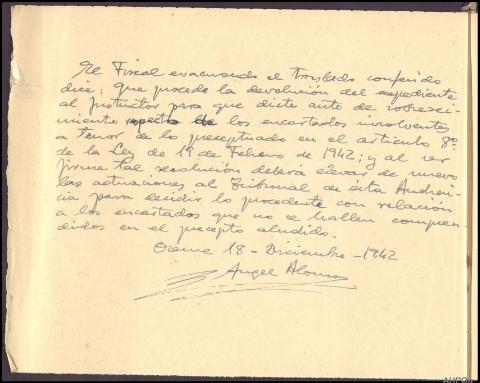 El Fiscal evacuando el traslado conferido
dice: que procede la devolución del expediente
al Instructor para que dicte auto de sobresei-
miento respecto de los encartados insolventes
a tenor de lo preceptuado en el artículo 8º
de la Ley de 19 de Febrero de 1942; y al ser
firme tal resolución deberá elevar de nuevo
las actuaciones al Tribunal de esta Audien-
cia para decidir lo procedente con relación
a los encartados que no se hallen compren-
didos en el precepto aludido.
Orense 18 - Diciembre - 1942
Angel Alonso